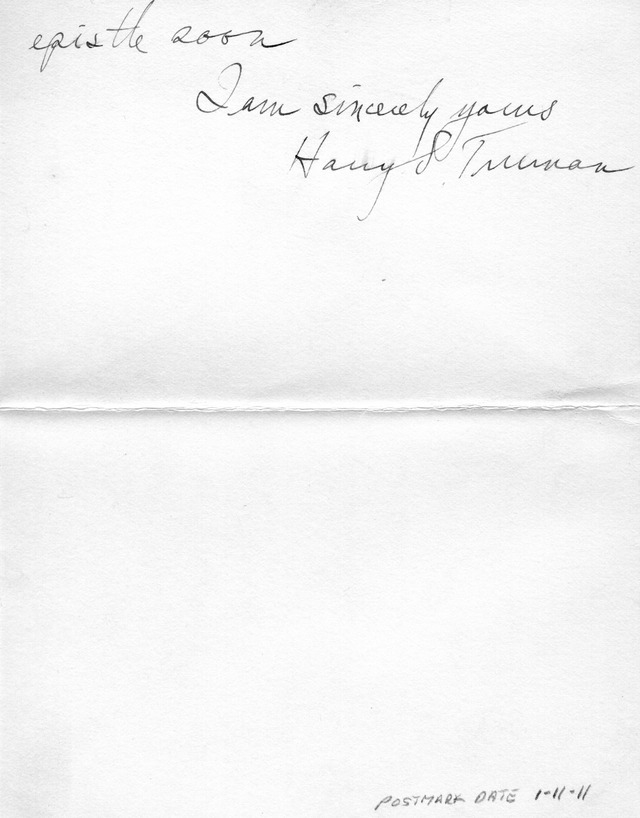 epistle soon
I am sincerely yours
Harry S. Truman
POSTMARK DATE 1-11-11